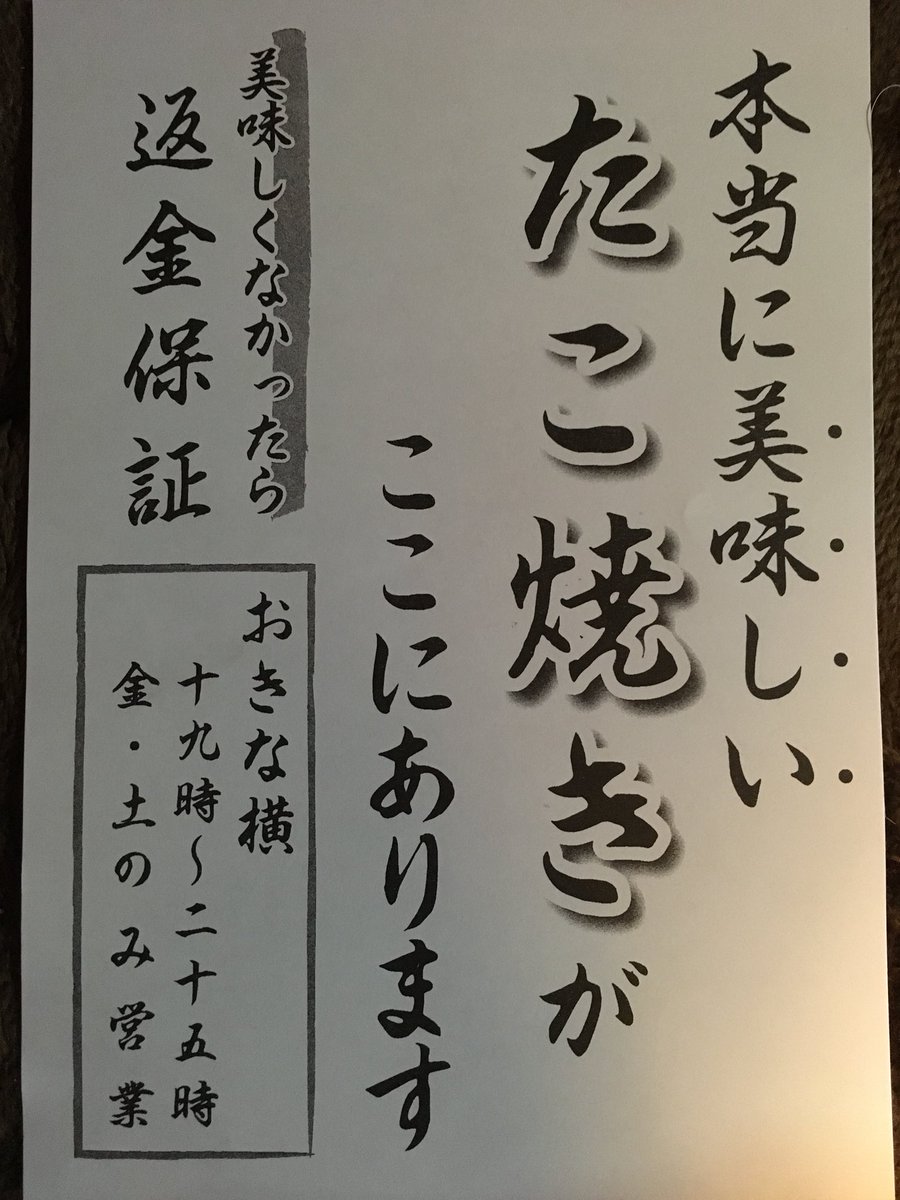 本当に美味しい
たこ焼きが
ここにあります
美味しくなかったら
返金保証
おきな横
十九時～二十五時
金・土のみ営業